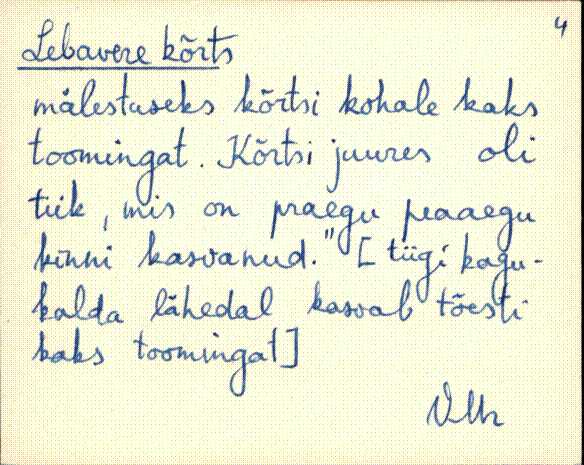 4
Lebavere kõrts
mälestuseks kõrtsi kohale kaks
toomingat. Kõrtsi juures oli
tiik, mis on praegu peaaegu
kinni kasvanud." [tiigi kagu-
kalda lähedal kasvab tõesti
kaks toomingat]